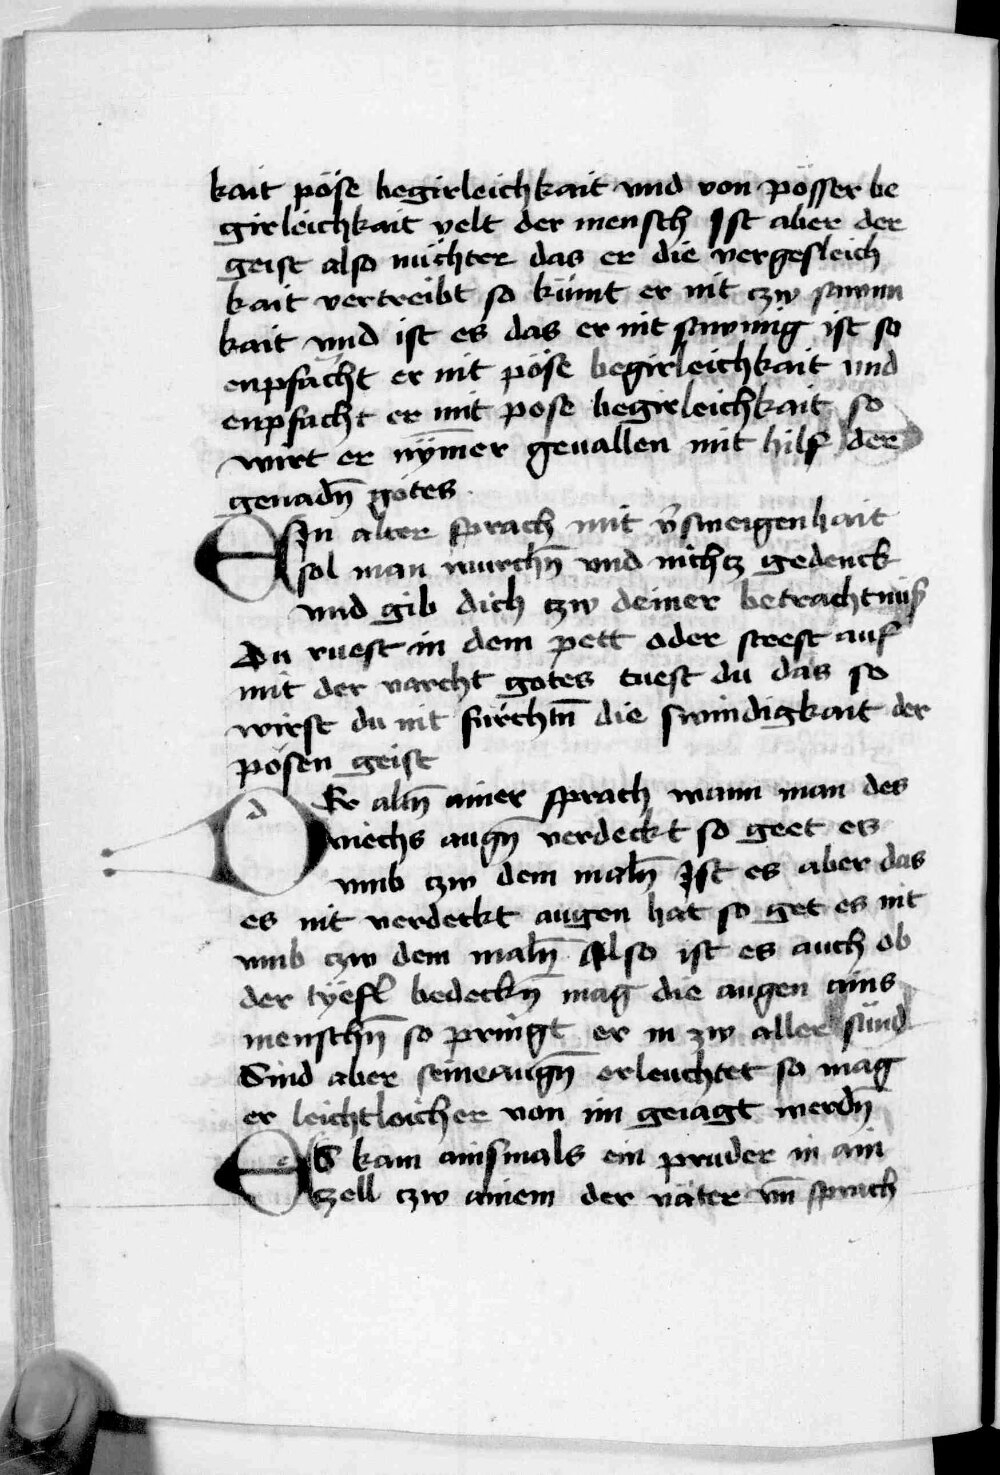 kait pöse begirleichkait vnd von pösser be
girleichkait velt der mensch Ist aber der
geist also nüchter das er die vergesleich
kait vertreibt so kümt er nit czw sawm
kait vnd ist es das er nit sawmig ist so
enpfächt er nit pöse begirleichkait vnd
enpfacht er nit pose begirleichkait so
wirt er nÿm̄er geuallen mit hilf der
genadn̄ götes
EIn alter sprach mit v̄sweigenhait
sol man wurchn̄ vnd nichtz gedenck
vnd gib dich czw deiner betrachtnüs
Du ruest in dem pett oder steest auf
mit der varcht gotes tuest du das so
wirst du nit fürchtn̄ die swindigkait der
pösen geist
DEr altn̄ ainer sprach wann man des
viechs augn̄ verdeckt so geet es
vmb czw dem maln̄ Ist es aber das
es nit verdeckt augen hat so get es nit
vmb czw dem maln̄ Also ist es auch ob
der tÿefl bedeckn̄ mag die augen ains
menschn̄ so pringt er in zw aller sünd
Sind aber seine augn̄ erleuchtet so mag
er leichtleicher von im geiagt werdn̄
ES kam ainsmals ein pruder in ain
zell czw ainem der väter vn̄ sprach